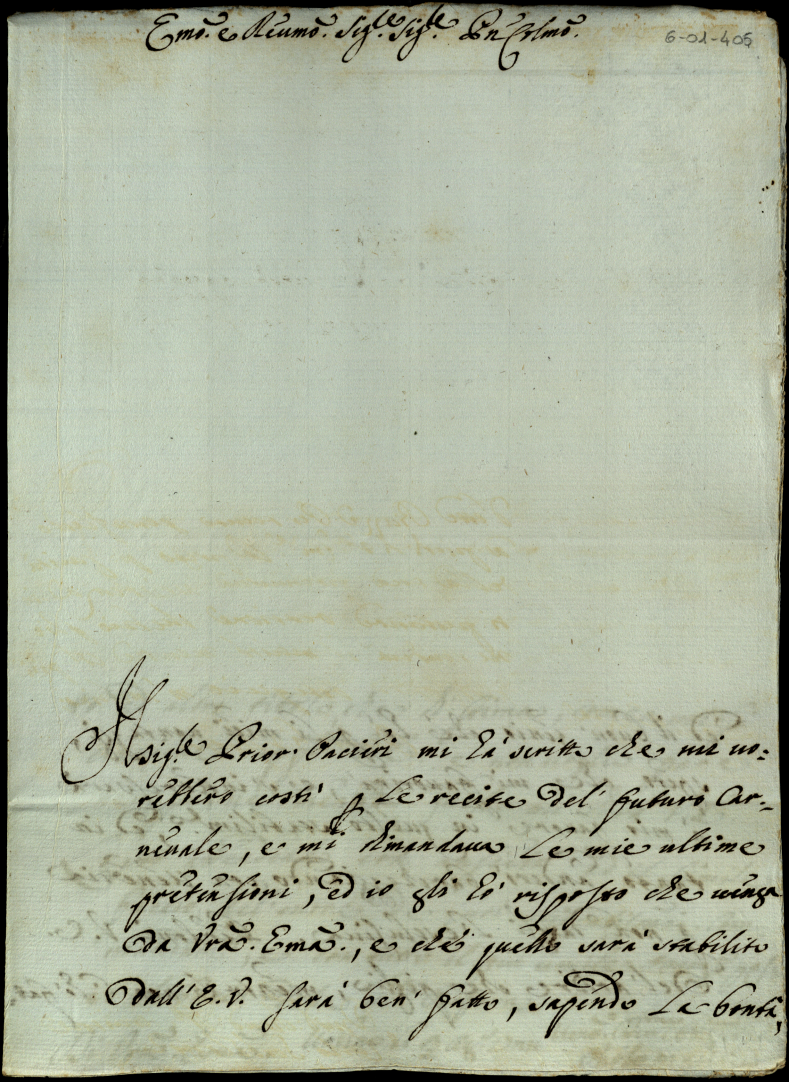 Emo. e Reumo. Sigle. Sigle. Pn Colmo.
6-01-405
Il
Sigle Prior. Paciéri mi hà scritto che mi uo=
rebbero costì p Le recite del' futuro Car=
neuale, e mi dimandaua Le mie ultime
pretensioni, ed io gli hò risposto che uenga
da Vra. Ema., e che quello sarà stabilito
dall' E. V. sarà ben' fatto, sapendo La bontà,